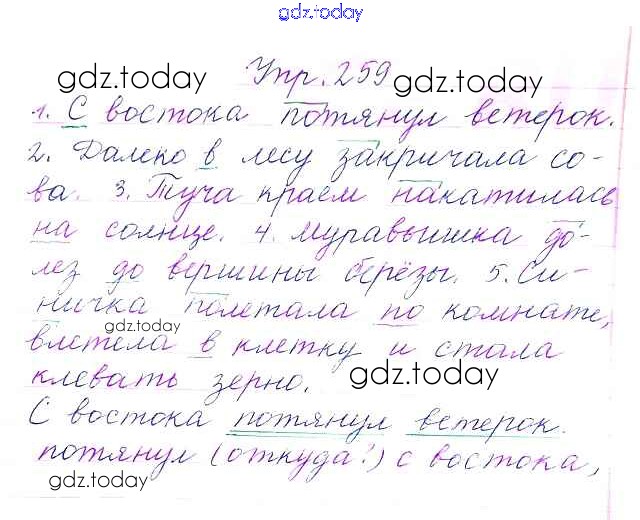 gdz.today
gdz.today Упр. 259 gdz.today
1. С востока потянул ветерок.
2. Далеко в лесу закричала со-
ва. 3. Туча краем накатилась
на солнце. 4. Муравьишка до-
лез до вершины берёзы. 5. Си-
ничка полетала по комнате,
gdz.today
влетела в клетку и стала
клевать зерно. gdz.today
С востока потянул ветерок.
потянул (откуда?) с востока,
gdz.today